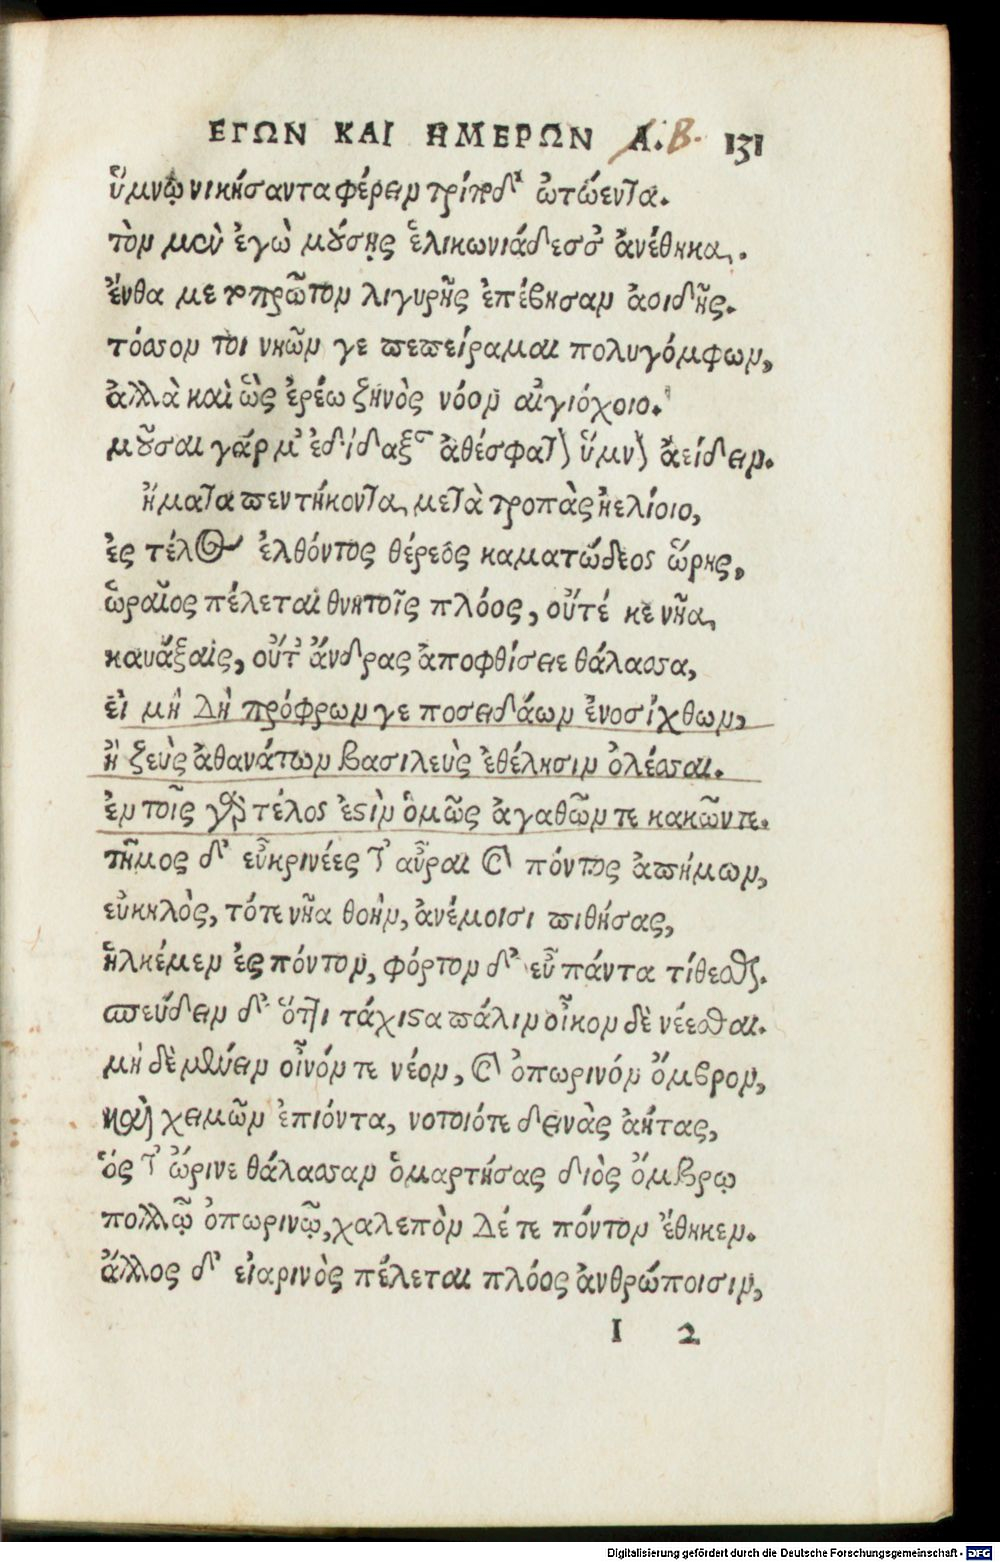 ΕΓΩΝ ΚΑΙ ΗΜΕΡΩΝ Α. Β. 131
ὕμνῳ νικήσαντα φέρειν τρίποδ' ὠτώεντα.
τὸν μὲν ἐγὼ μούσῃς ἑλικωνιάδεσσ' ἀνέθηκα.
ἔνθα με τοπρῶτον λιγυρῆς ἐπέβησαν ἀοιδῆς.
τόσσον τοι νηῶν γε πεπείραμαι πολυγόμφων,
ἀλλὰ καὶ ὣς ἐρέω ζηνὸς νόον αἰγιόχοιο.
μοῦσαι γάρ μ' ἐδίδαξαν ἀθέσφατον ὕμνον ἀείδειν.
ἤματα πεντήκοντα μετὰ τροπὰς ἠελίοιο,
ἐς τέλος ἐλθόντος θέρεος καματώδεος ὥρης,
ὡραῖος πέλεται θνητοῖς πλόος, οὔτέ κε νῆα
καυάξαις, οὔτ' ἄνδρας ἀποφθίσειε θάλασσα,
εἰ μὴ δὴ πρόφρων γε ποσειδάων ἐνοσίχθων,
ἢ ζεὺς ἀθανάτων βασιλεὺς ἐθέλησιν ὀλέσσαι.
ἐν τοῖς γὰρ τέλος ἐστὶν ὁμῶς ἀγαθῶν τε κακῶν τε.
τῆμος δ' εὐκρινέες τ' αὖραι καὶ πόντος ἀπήμων,
εὐκηλὸς, τότε νῆα θοὴν, ἀνέμοισι πιθήσας,
ἑλκέμεν ἐς πόντον, φόρτον δ' εὖ πάντα τίθεσθαι.
σπεύδειν δ' ὅττι τάχιστα πάλιν οἶκον δὲ νέεσθαι.
μὴ δὲ μένειν οἶνόν τε νέον, καὶ ὀπωρινόν ὄμβρον,
καὶ χειμῶν ἐπιόντα, νοτοιότε δεινὰς ἀήτας,
ὅς τ' ὤρινε θάλασσαν ὁμαρτήσας διὸς ὄμβρῳ
πολλῷ ὀπωρινῷ, χαλεπὸν δέ τε πόντον ἔθηκεν.
ἄλλος δ' εἰαρινὸς πέλεται πλόος ἀνθρώποισιν,
I 2
Digitalisierung gefördert durch die Deutsche Forschungsgemeinschaft - DFG